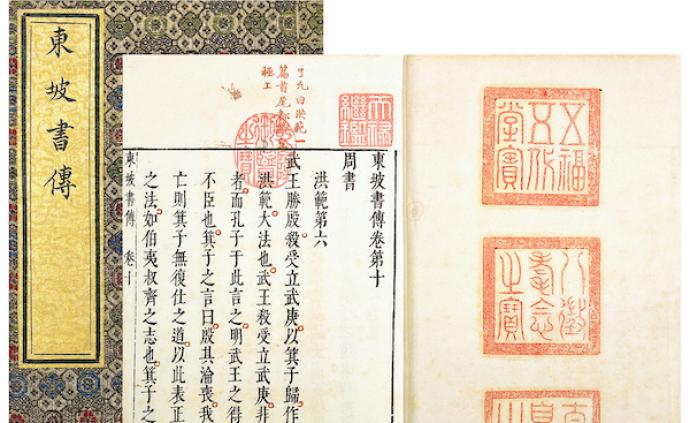 東坡書傳
五福
五代
堂寶
八徵
耄念
之寶
天祿
繼鑑
乾隆
御覽
之寶
了凡曰洪範一
篇首尾
東坡書傳卷第十
周書
洪範第六
武王勝殷殺受立武庚以箕子歸作
洪範大法也武王殺受立武庚非
者而孔子于此言之明武王之得
不臣也箕子之言曰殷其淪喪我
亡則箕子無復仕之道以此表正
之法如伯夷叔齊之志也箕子之
東坡書傳 卷十